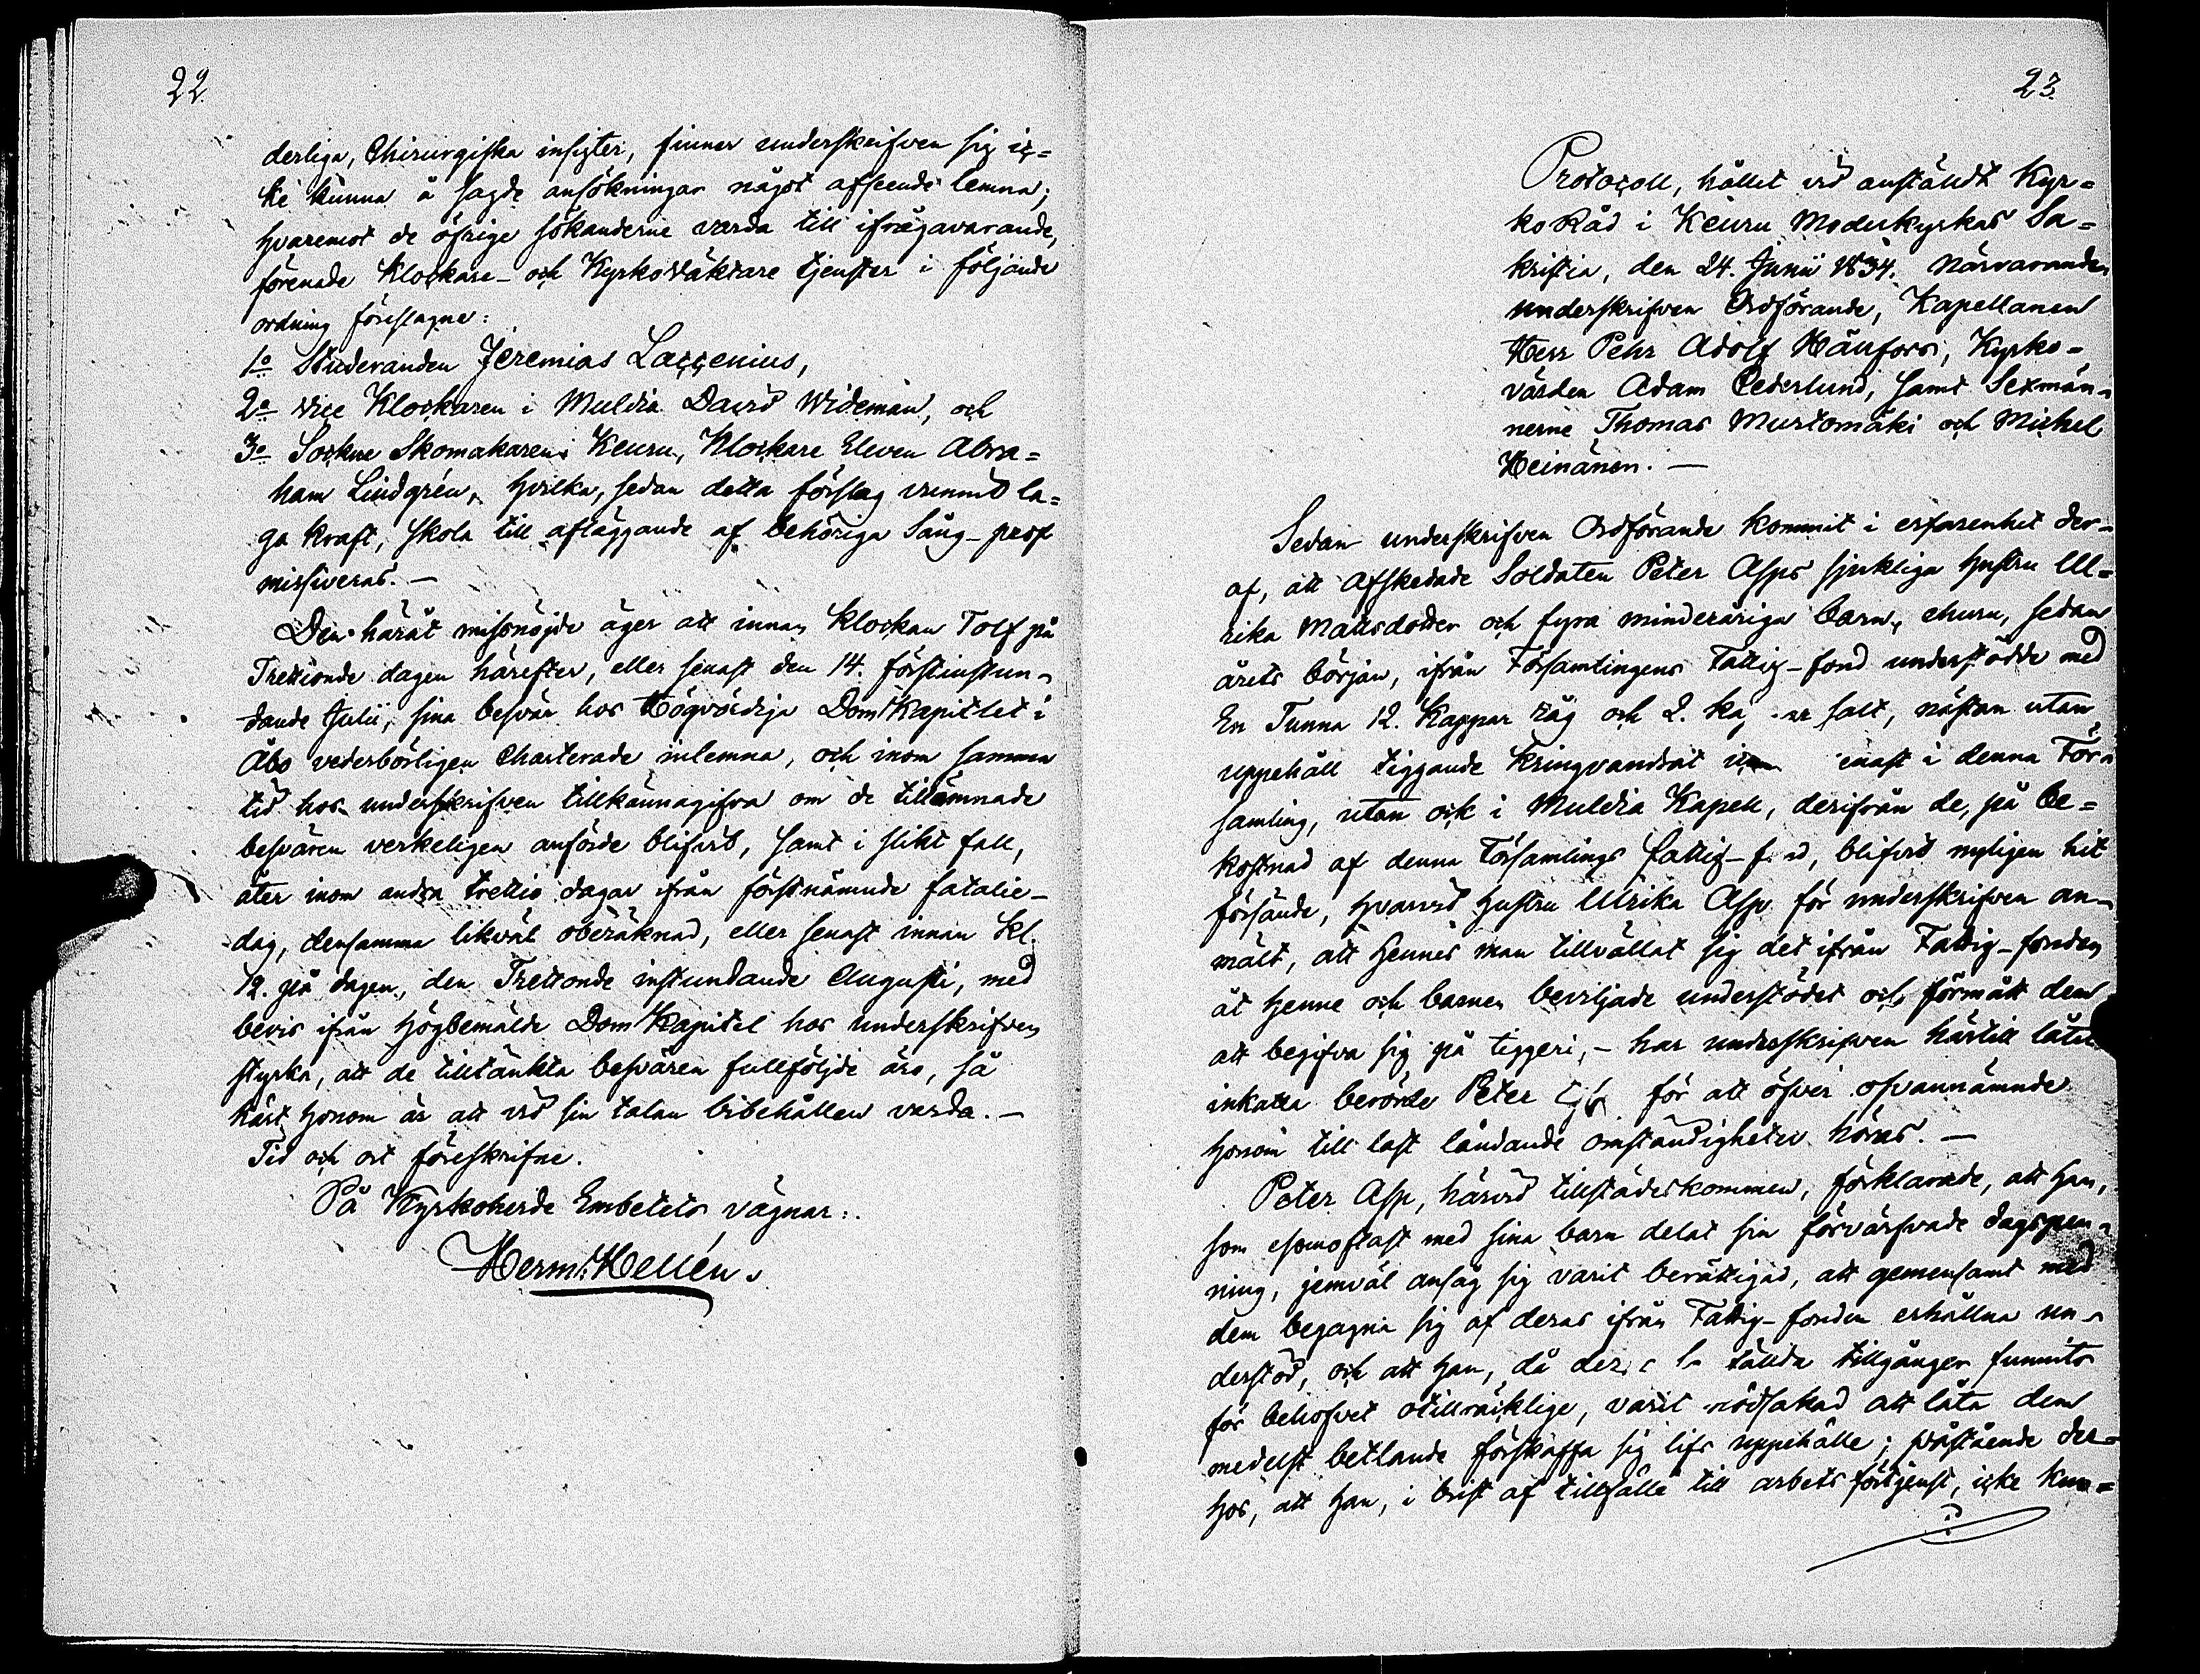 22.
derliga, Chirurgiska insigter, finner underskrifven sig ic=
ke kunna å sagde ansökningar något afseende lemna;
hvaremot de öfrige sökanderne varda till ifrågavarande,
förenade Klockare- och Kyrkoväktare tjenster i följande
ordning föreslagne:
1o Studeranden Jeremias Laccenius,
2o vice Klockaren i Muldia David Wideman, och
3o Sockne Skomakaren i Keuru, Klockare Eleven Abra=
ham Lindgrén, hvilka, sedan detta förslag vunnit la=
ga kraft, skola till afläggande af behöriga Sång-prof
missiveras. —
Den häråt misnöjde äger att innan klockan Tolf på
Trettionde dagen härefter, eller senast den 14. förstinstun-
dande Julii, sina besvär hos Högvördiga DomKapitlet i
Åbo vederbörligen Charterade inlemna, och inom samma
tid hos underskrifven tillkännagifva om de tillämnade
besvären verkeligen anförde blifvit, samt i slikt fall,
åter inom andra trettio dagar ifrån förstnämnde fatalie-
dag, densamma likväl oberäknad, eller senast innan Kl.
12. på dagen, den Trettonde instundande Augusti, med
bevis ifrån högbemälde DomKapitel hos underskrifven
styrka, att de tilltänkta besvären fullföljde äro, så
kärt honom är att vid sin talan bibehållen varda. —
Tid och ort föreskrifne.
På Kyrkoherde Embetets vägnar:
Herm: Hellén.
23.
Protocoll, hållet vid anstäldt Kyr=
koRåd i Keuru Moderkyrkas Sa=
kristia, den 24. Junii 1834. Närvarande
underskrifven Ordförande, Kapellanen
Herr Pehr Adolf Hänfors, Kyrko=
värden Adam Cederlund, samt Sexmän-
nerne Thomas Mustomäki och Michel
Heinänen. —
Sedan underskrifven Ordförande kommit i erfarenhet der-
af, att Afskedade Soldaten Peter Asps sjukliga hustru Ul=
rika Mattsdotter och fyra minderåriga barn, ehuru, sedan
årets början, ifrån Församlingens Fattig-fond understödde med
En Tunna 12. Kappar råg och 2. salt, nästan utan
uppehåll tiggande kringvandrat i denna För=
samling, utan ock i Muldia Kapell, derifrån de, på be=
kostnad af denna Församlings fattig- blifvit nyligen hit
försände, hvarvid hustru Ulrika Asp för underskrifven an-
mält, att hennes man tillvällat sig det ifrån Fattig-fonden
åt henne och barnen beviljade understödet och förmått dem
att begifva sig på tiggeri, – har underskrifven härtill låtit
inkalla berörde Peter för att öfver ofvannämnde
honom till last ländande omständigheter höras. —
Peter Asp, härvid tillstädeskommen, förklarade, att han,
som esomoftast med sina barn delat sin förvärfvade dagspen=
ning, jemväl ansåg sig varit berättigad, att gemensamt med
dem begagna sig af deras ifrån Fattig-fonden erhållna un=
derstöd, och att han, då tillgångar funnits
för behofvet otillräcklige, varit nödsakad att låta dem
medelst betlande förskaffa sig lifs uppehälle; påstående der=
hos, att han, i brist af tillfälle till arbets förtjenst, icke kun=